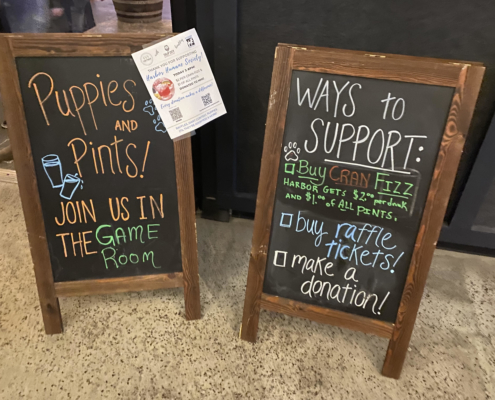 Puppies
AND
Pints!
JOIN US IN
THE GAME
ROOM
Harbor Humane Society!
WAYS to
SUPPORT:
Buy CRAN FIZZ
HARBOR GETS $2.00 per drink
AND $1.00 of ALL PINTS.
buy raffle
tickets!
make a
donation!